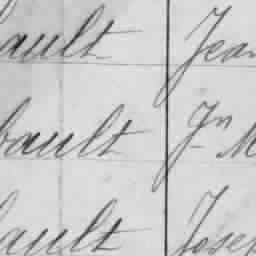 bault Jean
bault Jn M
bault Josep